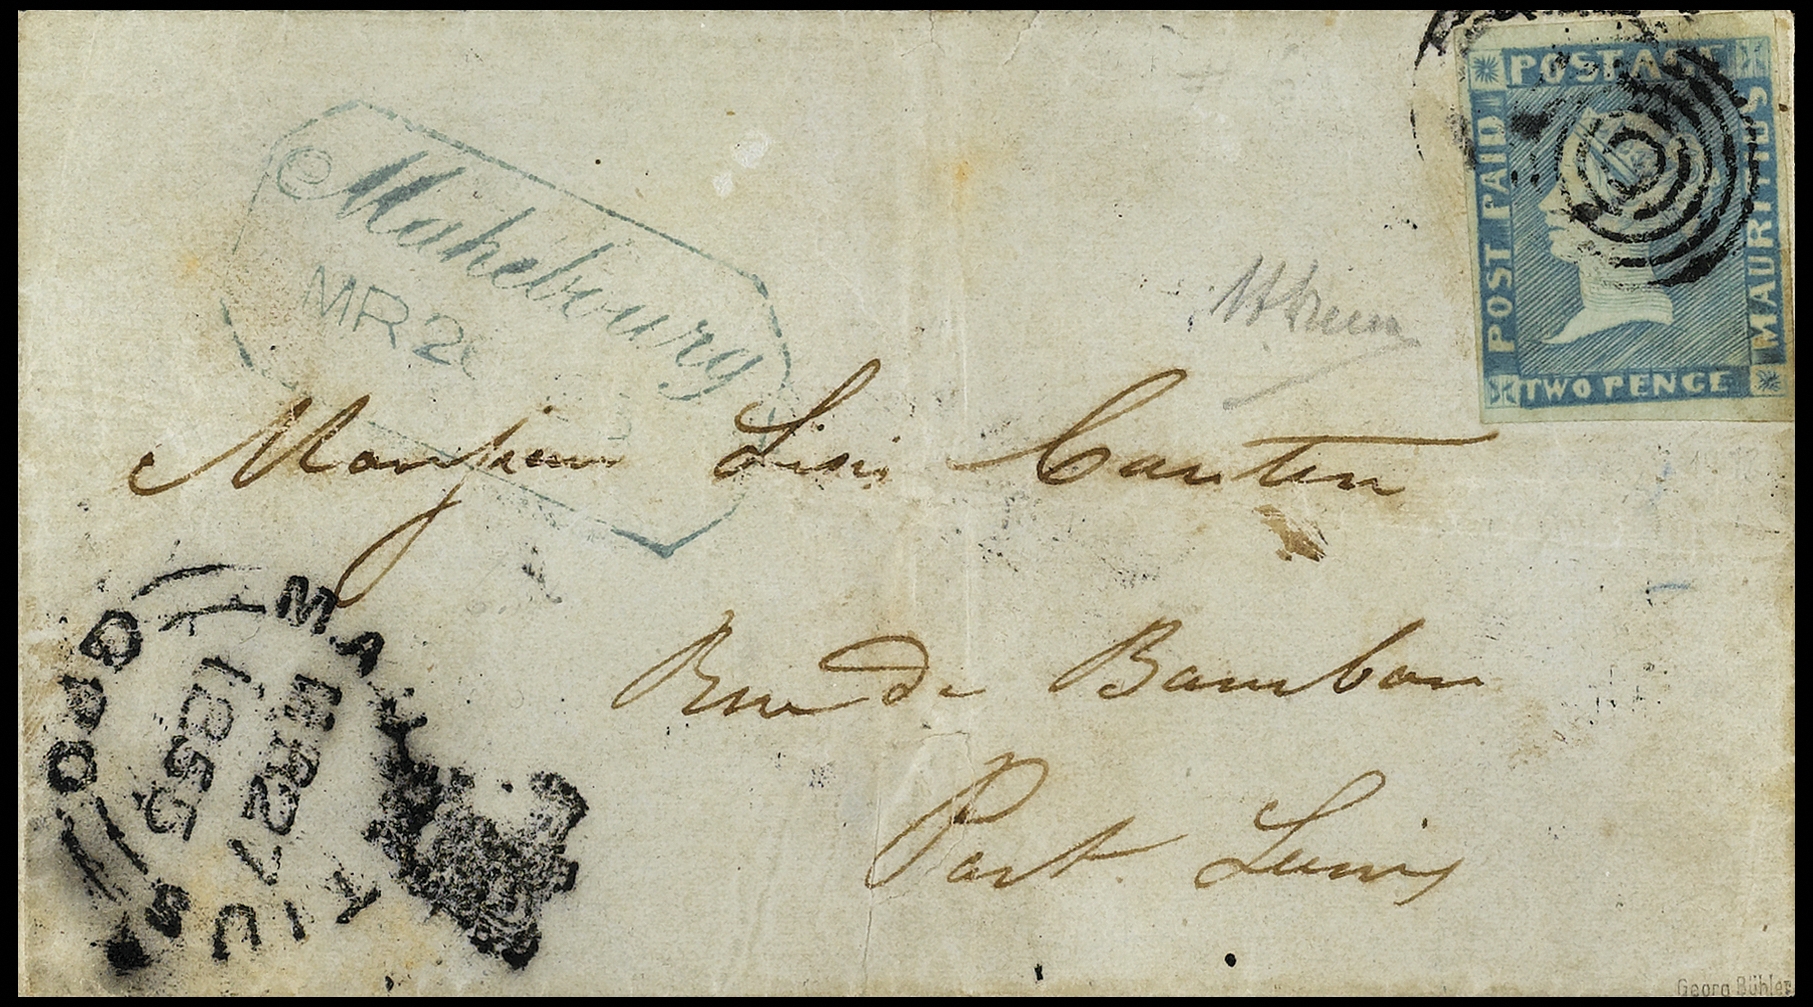 POSTAGE
POST PAID
MAURITIUS
TWO PENCE
Mahebourg
MR 2
Monsieur Lisis Cantin
Rue de Bourbon
Port Louis
MAURITIUS
MR 27
1855
Georg Bühler